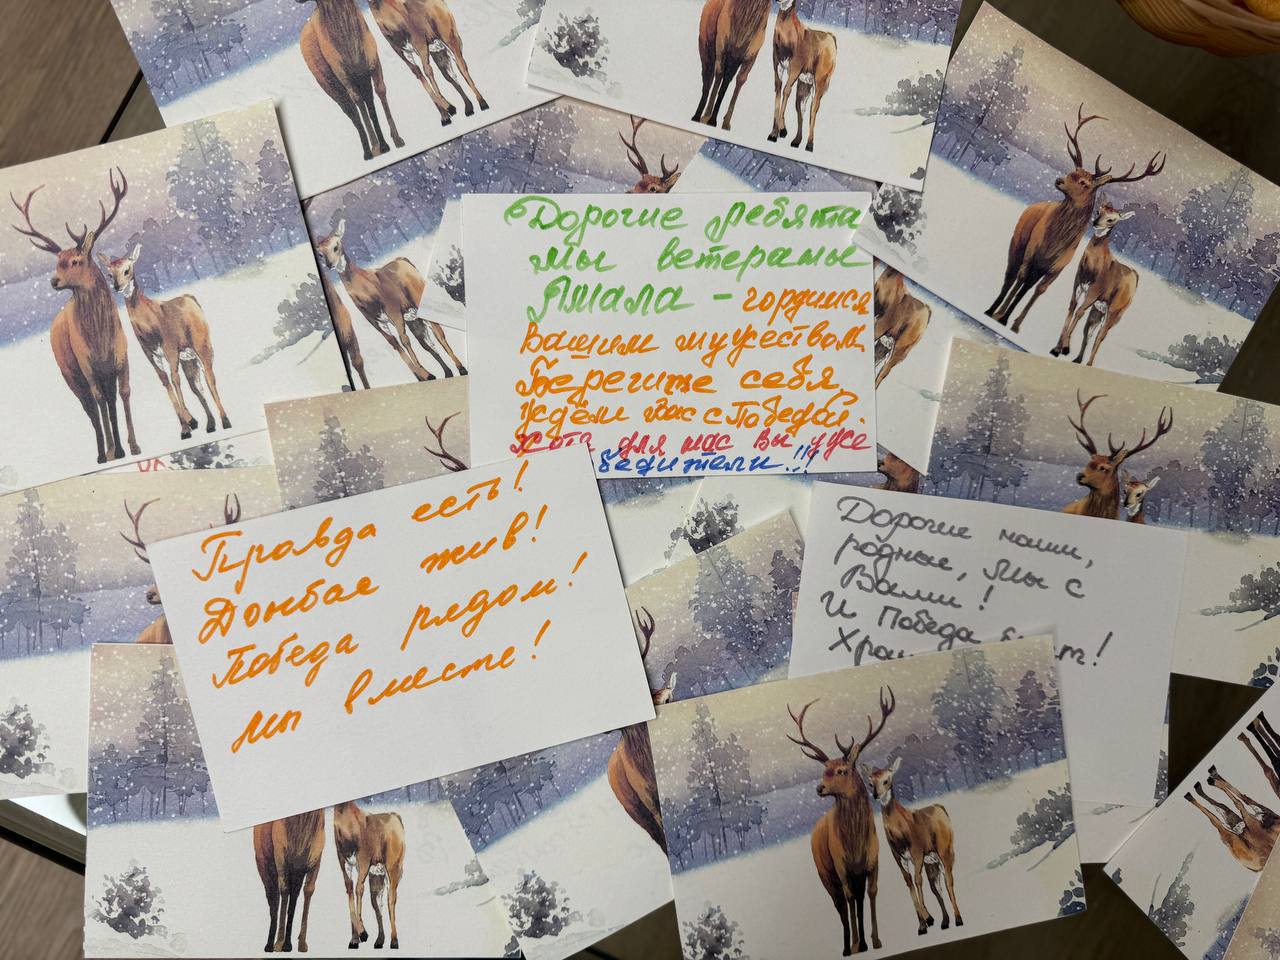 Дорогие ребята
мы ветераны
Ямала - гордимся
Вашим мужеством.
Берегите себя,
ждём Вас с Победой.
хотя для нас вы уже
бедители!!!
Правда есть!
Донбас жив!
Победа рядом!
мы вместе!
Дорогие наши,
родные, мы с
Вами!
И Победа